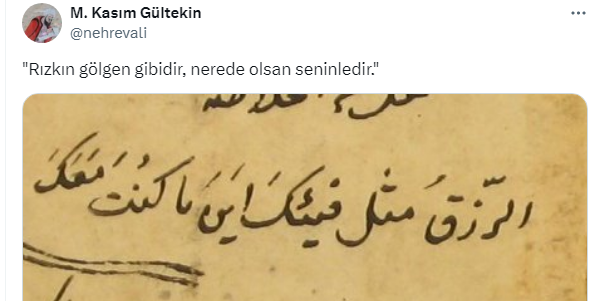 M. Kasım Gültekin
@nehrevali
"Rızkın gölgen gibidir, nerede olsan seninledir."
الرّزقُ مثل فيئكَ اَينَ ما كنُتَ مَعَكَ